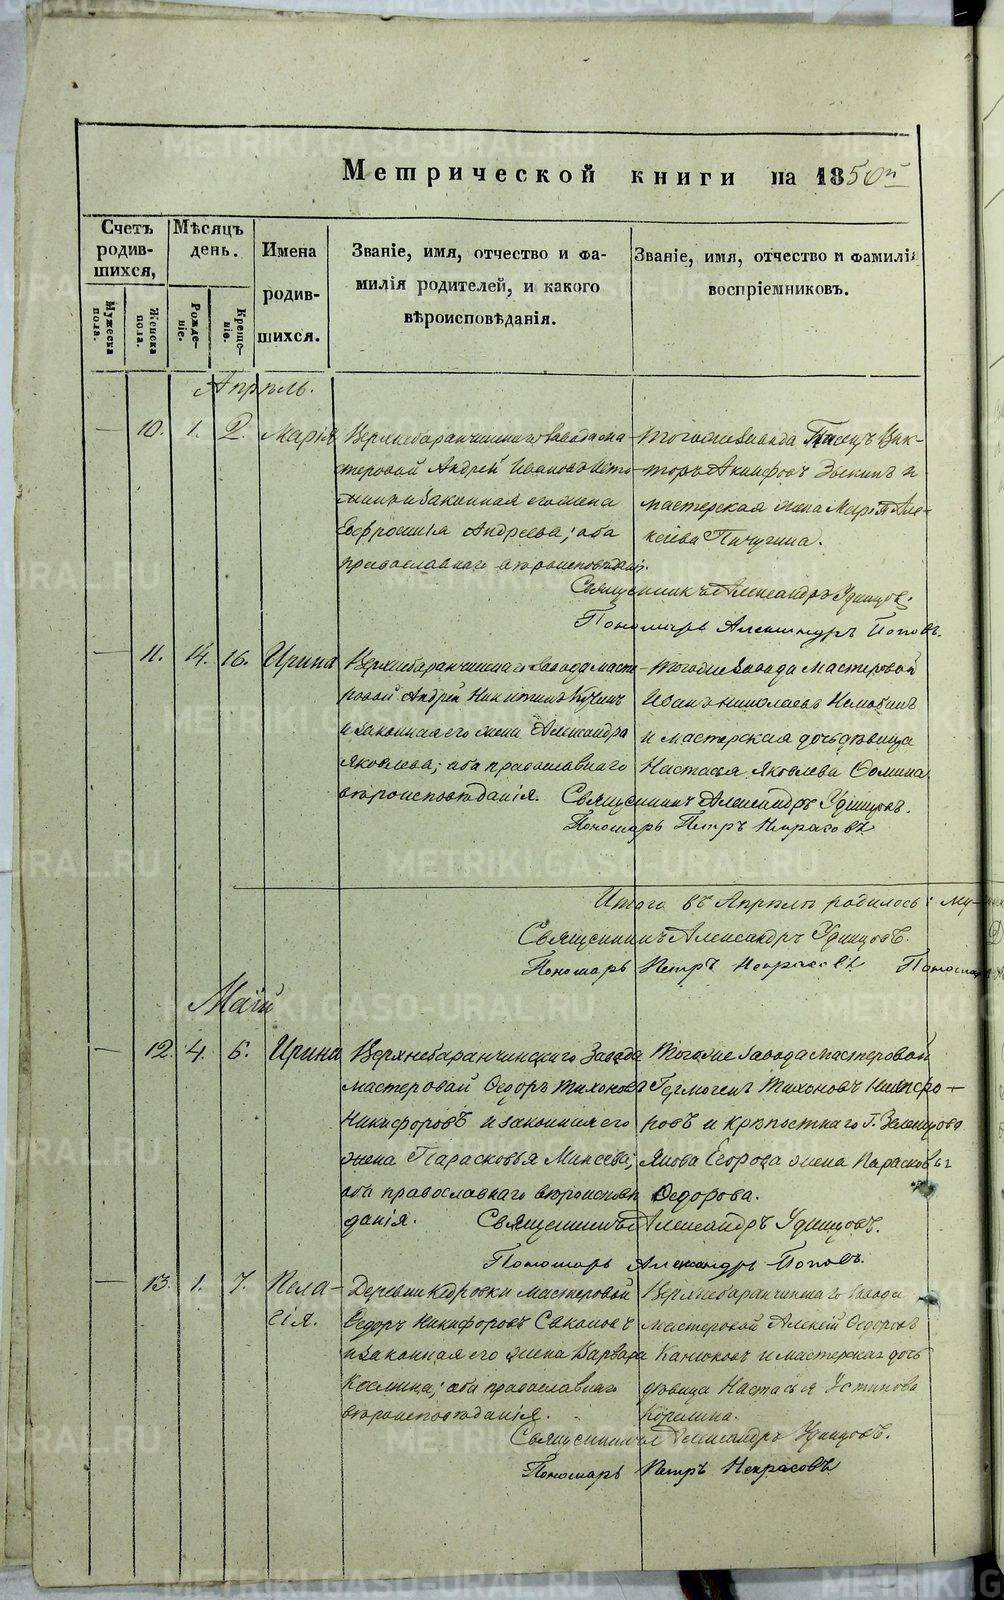 Метрической книги на 1850й
Счетъ родившихся,
Мѣсяцъ день.
Имена родившихся.
Званіе, имя, отчество и фамилія родителей, и какого вѣроисповѣданія.
Званіе, имя, отчество и фамилія воспріемниковъ.
Мужеска пола.
Женска пола.
Рожденіе.
Крещеніе.
Апрѣль.
— 10. 1. 2. Марія
Верхнебаранчинскаго завода ма-
стеровой Андрей Ивановъ
и законная его жена
Евфросинія Андреева; оба
православнаго вѣроисповѣданія.
Тогоже завода Писецъ Вик-
торъ Акинфовъ и
мастерская жена Марія Але-
ксіева Пичугина.
Священникъ Александръ Удинцовъ.
Пономарь Александръ Поповъ.
— 11. 14. 16. Ирина
Верхнебаранчинскаго завода масте-
ровой Андрей Никитинъ
и законная его жена Александра
Яковлева; оба православнаго
вѣроисповѣданія.
Тогоже завода мастеровой
Иванъ Николаевъ
и мастерская дочь дѣвица
Настасья Яковлева Ѳомина
Священникъ Александръ Удинцовъ.
Пономарь Петръ Некрасовъ
Итого въ Апрѣлѣ родилось: му-
Священникъ Александръ Удинцовъ.
Пономарь Петръ Некрасовъ Пономарь
Май
— 12. 4. 6. Ирина
Верхнебаранчинскаго Завода
мастеровой Ѳедоръ Тихоновъ
Никифоровъ и законная его
жена Парасковья Минеева;
оба православнаго вѣроисповѣ
данія.
Тогоже завода мастеровой
Гермогенъ Тихоновъ Никифо-
ровъ и крѣпостнаго Г. Зеленцова
Якова Егорова жена Парасковья
Ѳедорова.
Священникъ Александръ Удинцовъ.
Пономарь Александръ Поповъ.
— 13. 1. 7. Пела-
гія.
Деревни Кедровки мастеровой
Ѳедоръ Никифоровъ Соколовъ
и законная его жена Варвара
Космина; оба православнаго
вѣроисповѣданія.
Верхнебаранчинскаго завода
мастеровой Алексѣй Ѳедоровъ
Канюковъ и мастерская дочь
дѣвица Настасья Устинова
Корелина.
Священникъ Александръ Удинцовъ.
Пономарь Петръ Некрасовъ
METRIKI.GASO-URAL.RU